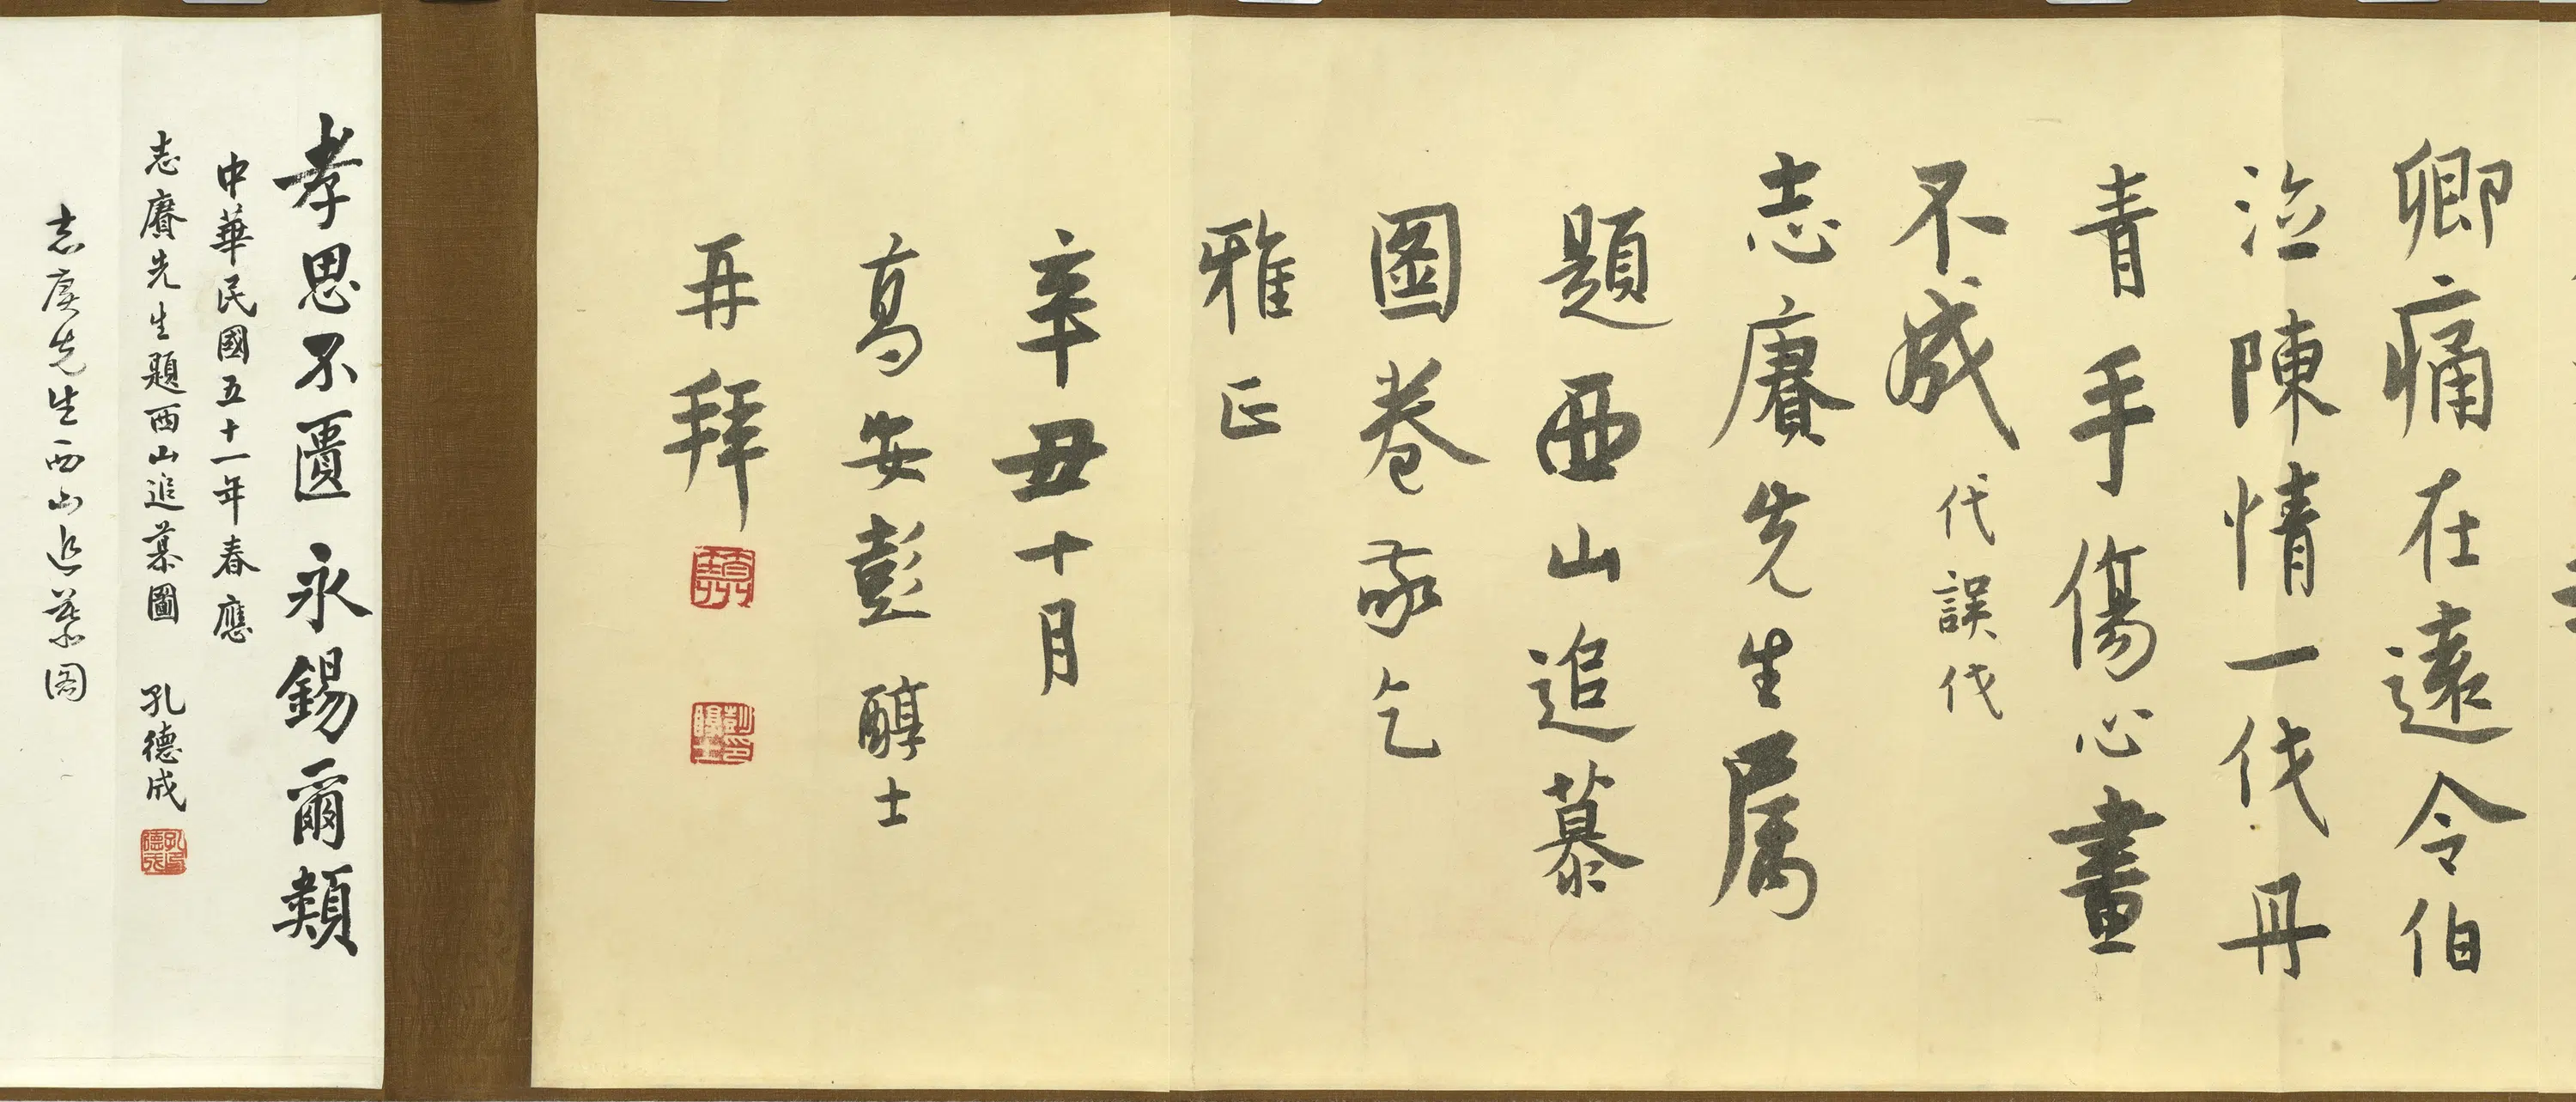 卿痛在遠令伯
泣陳情一伐丹
青手傷心畫
不成 代誤伐
志賡先生属
題西山追慕
圖卷敬乞
雅正
辛丑十月
高安彭醇士
再拜
彭醇士印
孝思不匱永錫爾類
中華民國五十一年春應
志賡先生題西山追慕圖 孔德成
孔德成
志賡先生西山追慕图